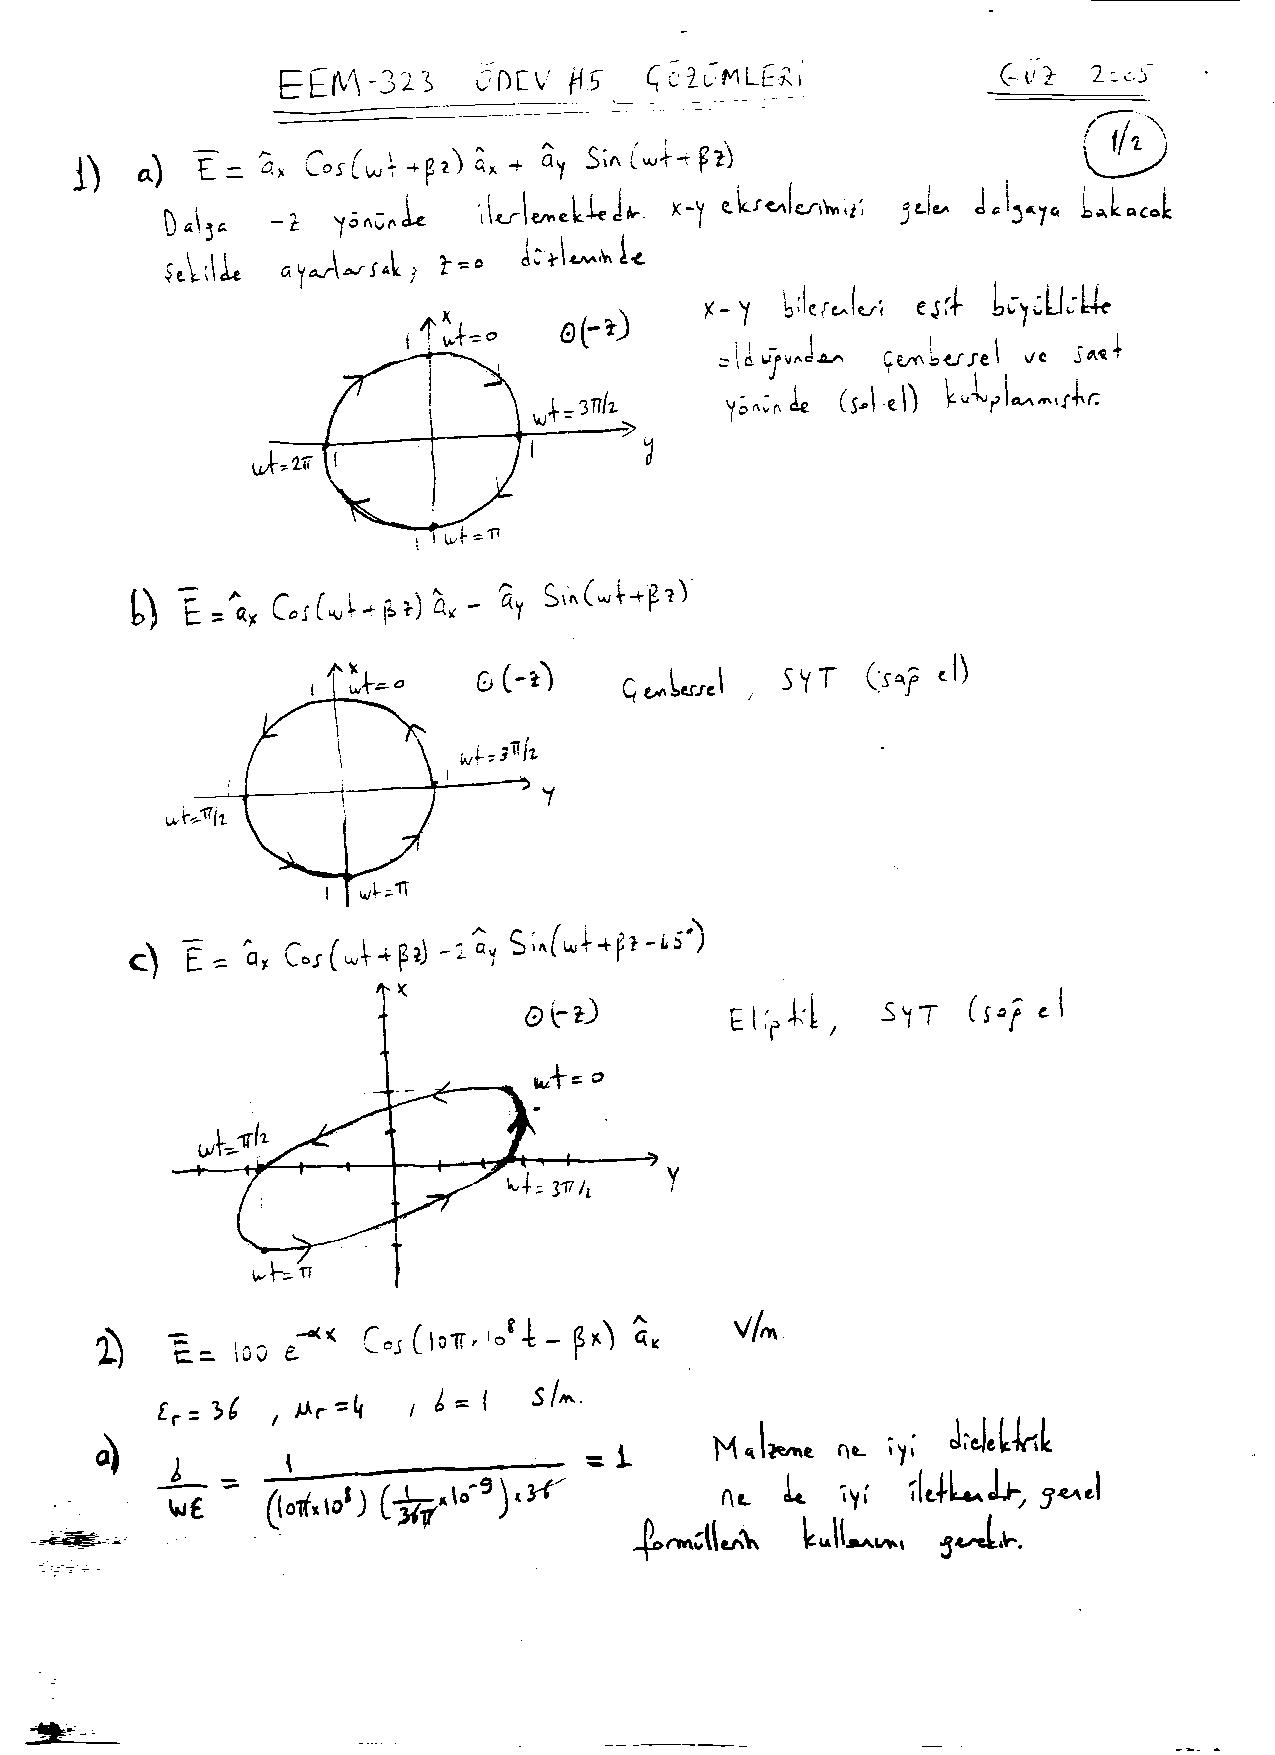 EEM-323 ÖDEV #5 ÇÖZÜMLERİ GÜZ 2005
1/2
1) a) E̅ = âx Cos(wt+βz) âx + ây Sin(wt+βz)
Dalga -z yönünde ilerlemektedir. x-y eksenlerimizi gelen dalgaya bakacak
şekilde ayarlarsak, z=0 düzleminde
x-y bileşenleri eşit büyüklükte
olduğundan çembersel ve saat
yönünde (sol el) kutuplanmıştır.
x
1 wt=0 ⊙(-z)
wt=3π/2
wt=2π 1 1 y
1 wt=π
b) E̅ = âx Cos(wt+βz) âx - ây Sin(wt+βz)
x
1 wt=0 ⊙(-z) Çembersel, SYT (sağ el)
wt=3π/2
1 1 y
wt=π/2
1 wt=π
c) E̅ = âx Cos(wt+βz) -2 ây Sin(wt+βz-45°)
x
⊙(-z) Eliptik, SYT (sağ el
wt=0
wt=π/2
y
wt=3π/2
wt=π
2) E̅ = 100 e^-αx Cos(10π·10^8 t - βx) âx V/m.
εr=36, μr=4, б=1 S/m.
a) б/wε = 1/((10π×10^8)(1/36π ×10^-9)×36) = 1 Malzeme ne iyi dielektrik
ne de iyi iletkendir, genel
formüllerin kullanımı gerekir.